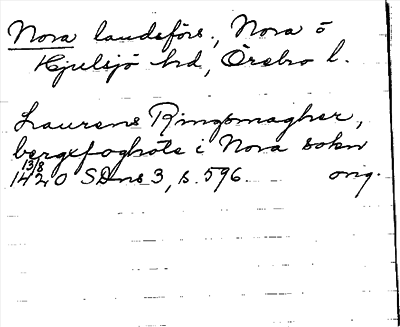 Nora landsförs., Nora o
Hjulsjö hd, Örebro l.
Laurens Ringsmagher,
bergxfoghote i Nora sokn
13/8
1420 SDns 3, s. 596. orig.